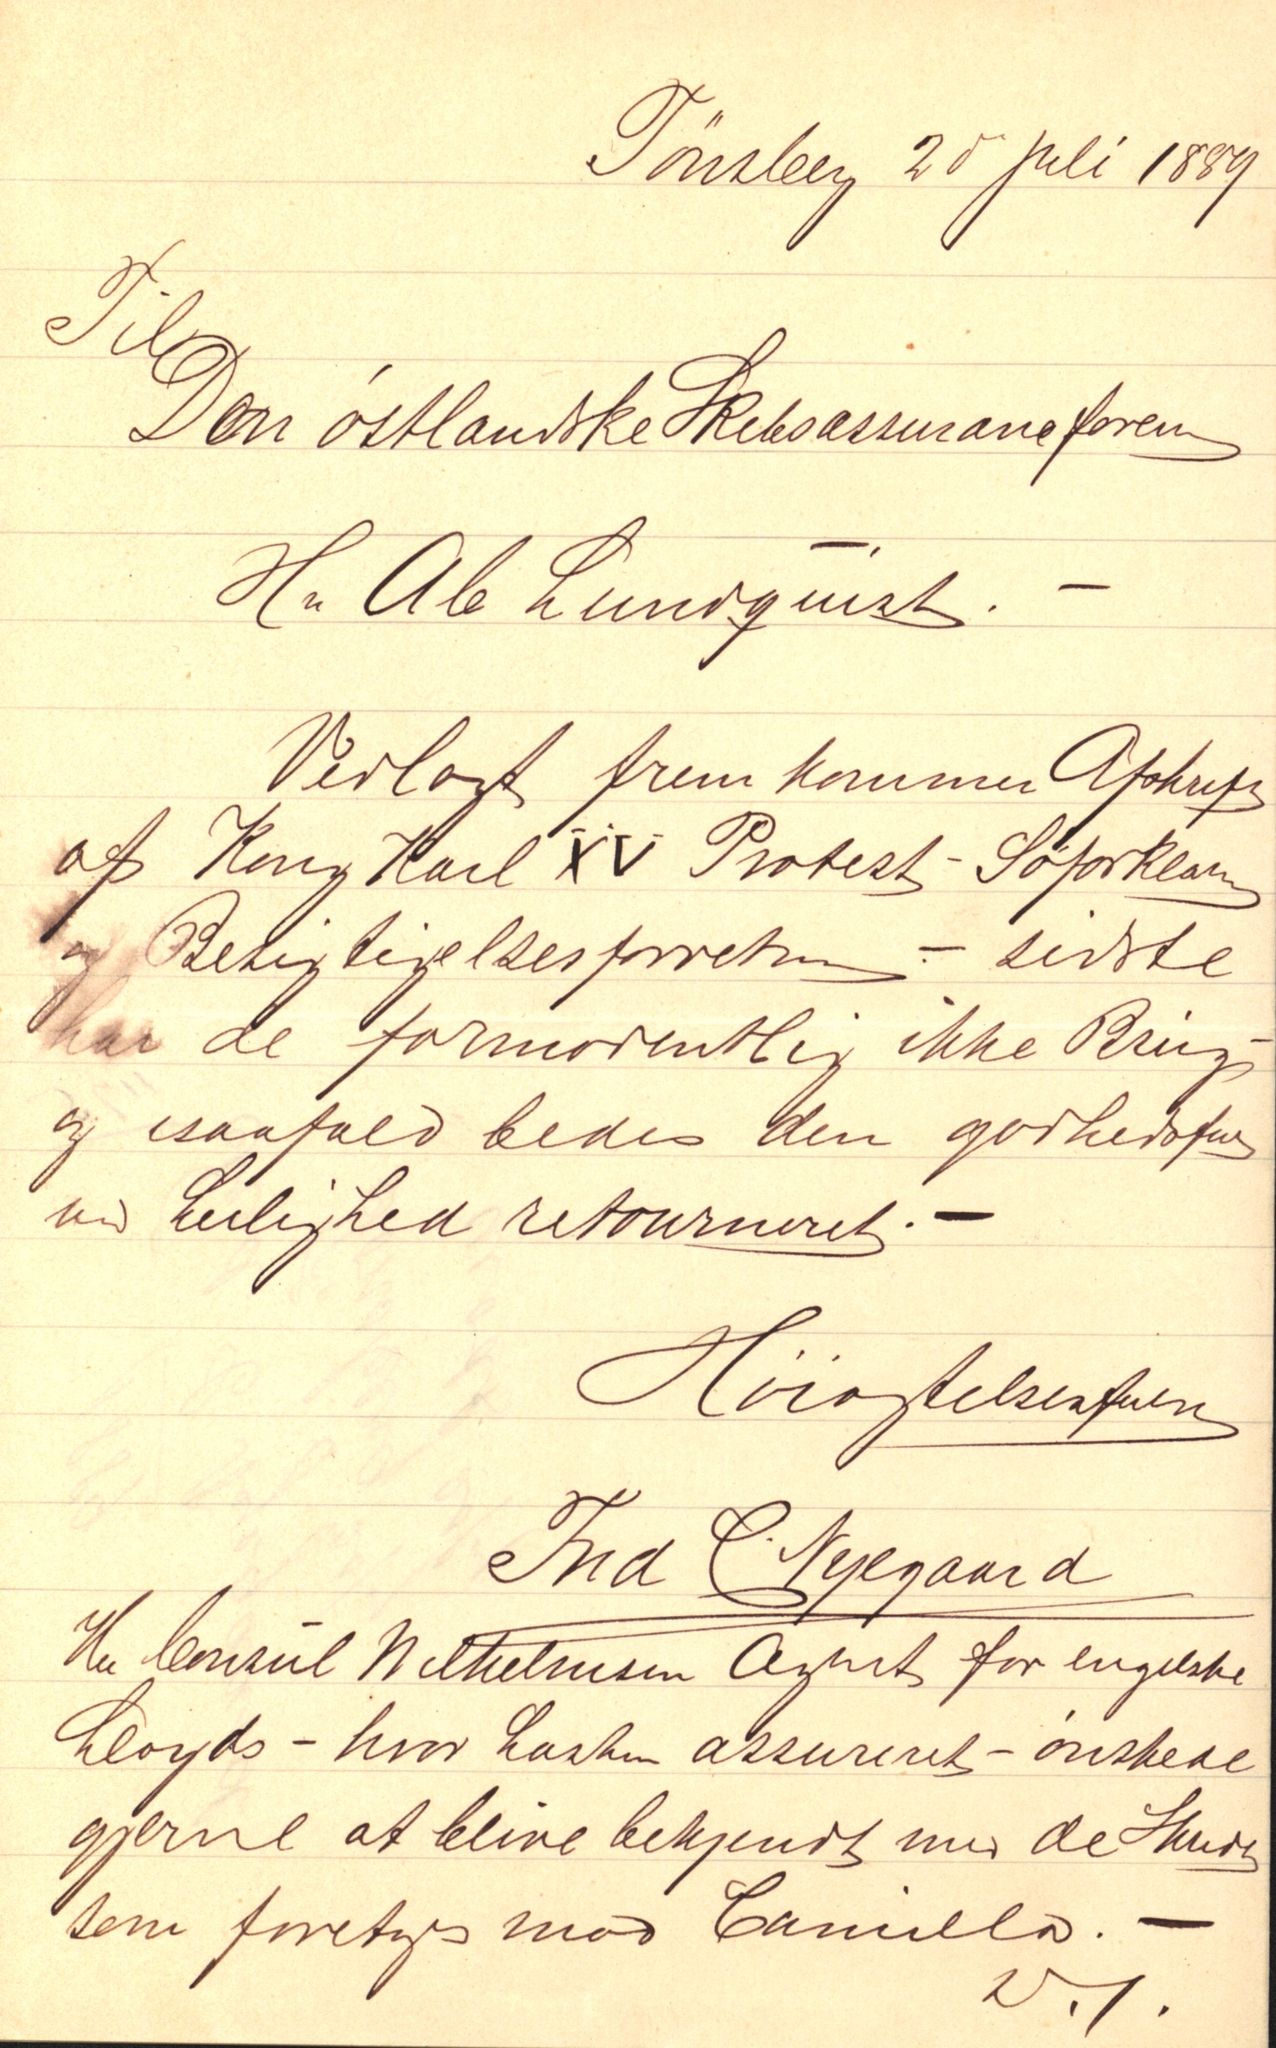 Tönsberg 20 Juli 1889
Til
Den östlandske Skibsassuranceforen
Hr Ab Lundquist. —
Vedlagt fremkommer Afskrift
af Kong Karl XV Protest - Söforklar
og Besigtigelsesforretn — sidste
har de formodentlig ikke Brug
og isaafald bedes den godhedsful
ved Leilighed retourneret. —
Höiagtelsesfuld
Fred C. Nyegaard
Hr Consul Wilhelmsen Agent for engelske
Lloyds - hvor Lasten assureret - önskede
gjerne at blive bekjendt med de Skridt
som foretages mod Camilla. —